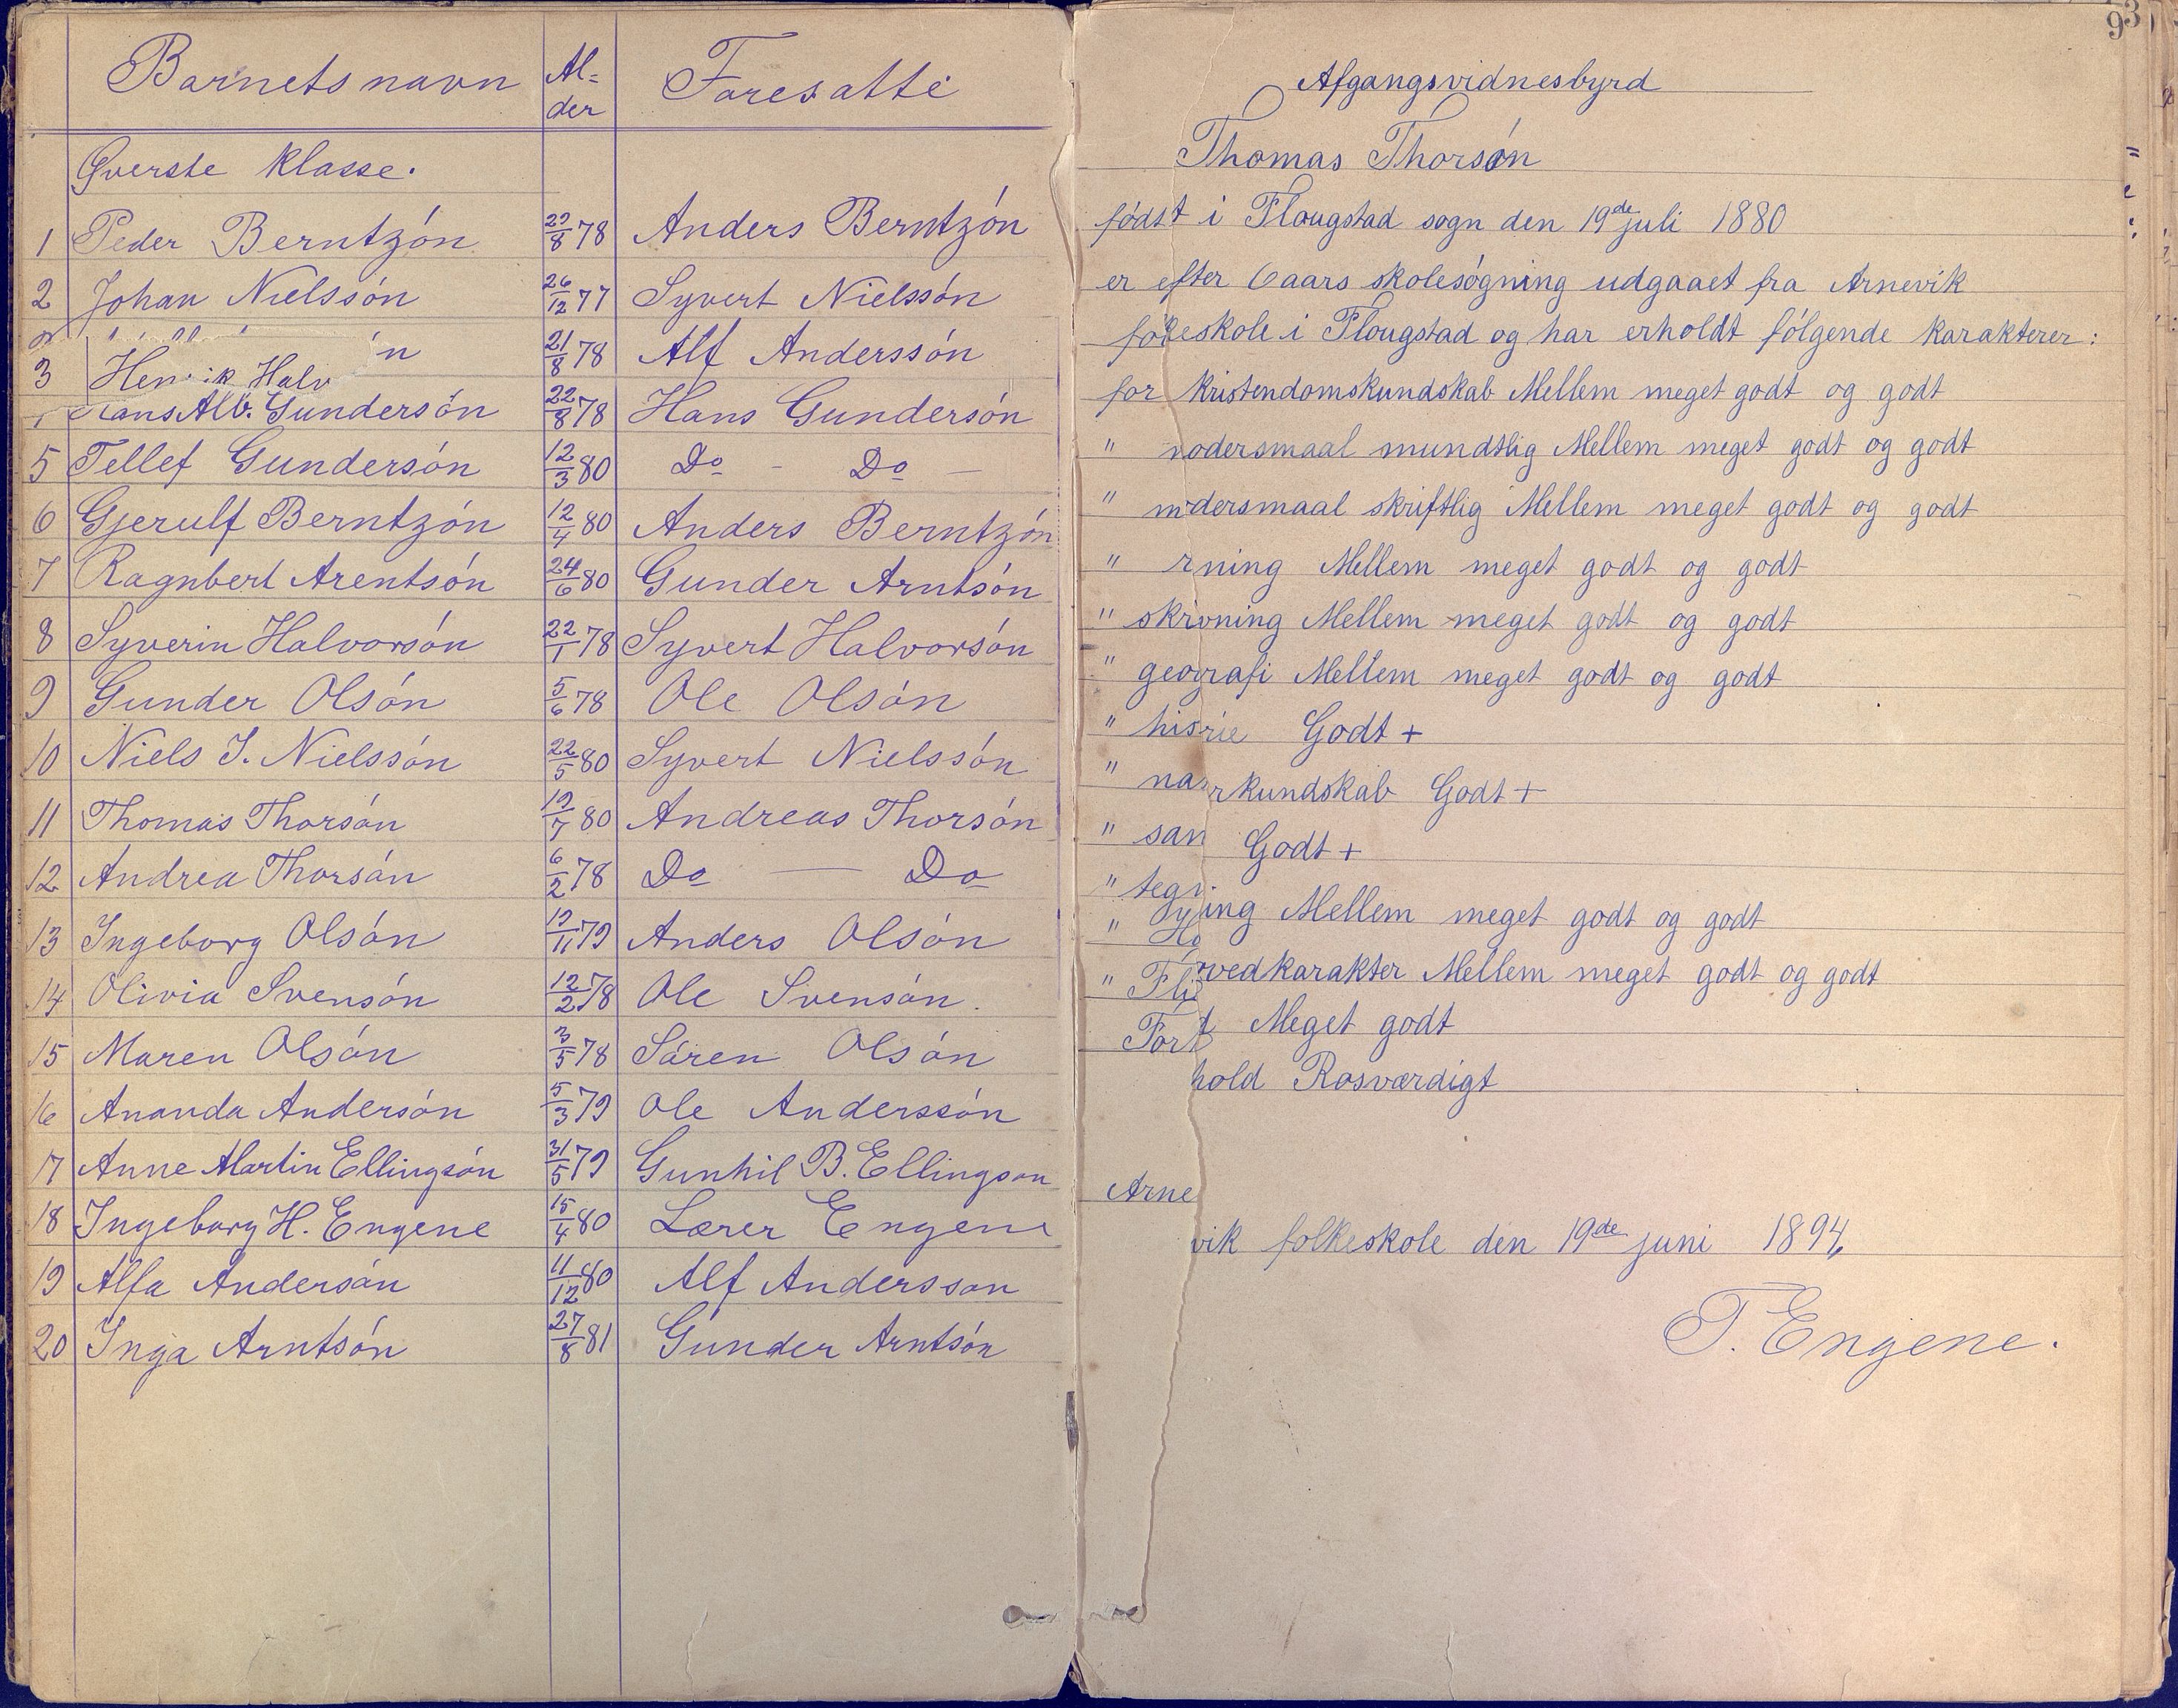 Barnets navn Al- der Foresatte
Øverste klasse.
1 Peder Berntzón 29/8 78 Anders Berntzón
2 Johan Nielssón 26/12 77 Syvert Nielssón
3 Henrik Halv n 21/8 78 Alf Anderssón
Hans Alb. Gundersón 22/8 78 Hans Gundersón
5 Tellef Gundersón 12/3 80 Do - Do -
6 Gjerulf Berntzón 12/4 80 Anders Berntzón
7 Ragnbert Arentsón 24/6 80 Gunder Arntsón
8 Syverin Halvorsón 22/1 78 Syvert Halvorsón
9 Gunder Olsón 5/6 78 Ole Olsón
10 Niels S. Nielssón 22/5 80 Syvert Nielssón
11 Thomas Thorsón 19/7 80 Andreas Thorsón
12 Andrea Thorsón 6/2 78 Do — Do
13 Ingeborg Olsón 19/11 79 Anders Olsón
14 Olivia Svensón 12/2 78 Ole Svensón.
15 Maren Olsón 3/5 78 Sóren Olsón
16 Ananda Andersón 5/3 79 Ole Anderssón
17 Anne Martin Ellingsón 31/5 79 Gunhil B. Ellingson
18 Ingeborg H. Engene 15/4 80 Lærer Engene
19 Alfa Andersón 11/12 80 Alf Andersson
20 Inga Arntsón 27/8 81 Gunder Arntsón
93
Afgangsvidnesbyrd
Thomas Thorsón
fódst i Flougstad sogn den 19de juli 1880
er efter 6 aars skolesógning udgaaet fra Arnevik
folkeskole i Flougstad og har erholdt fólgende karakterer:
for kristendomskundskab Mellem meget godt og godt
" modersmaal mundtlig Mellem meget godt og godt
" modersmaal skriftlig Mellem meget godt og godt
" rning Mellem meget godt og godt
" skrivning Mellem meget godt og godt
" geografi Mellem meget godt og godt
" hisrie Godt +
" narkundskab Godt +
" san Godt +
" tegning Mellem meget godt og godt
" Hovedkarakter Mellem meget godt og godt
" Flit Meget godt
Forhold Rosværdigt
Arnevik folkeskole den 19de juni 1894,
T. Engene.